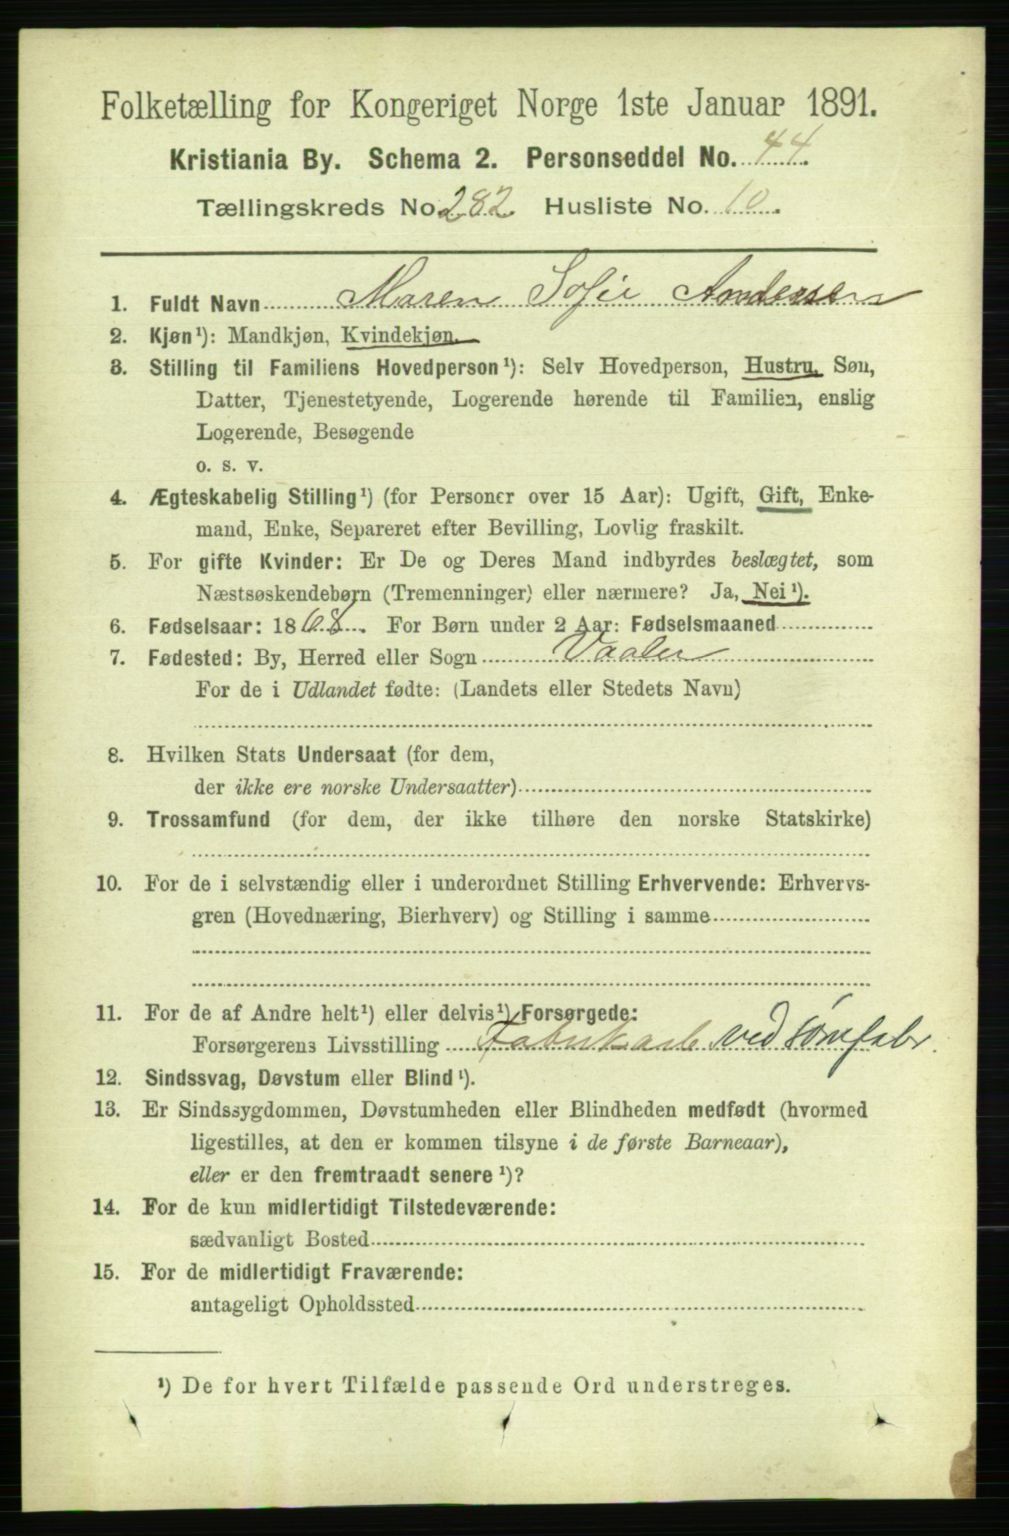 Folketælling for Kongeriget Norge 1ste Januar 1891.
Kristiania By. Schema 2. Personseddel No. 44.
Tællingskreds No. 282. Husliste No. 10.
1. Fuldt Navn Maren Sofie Andersen
2. Kjøn¹): Mandkjøn, Kvindekjøn.
3. Stilling til Familiens Hovedperson¹): Selv Hovedperson, Hustru, Søn,
Datter, Tjenestetyende, Logerende hørende til Familien, enslig
Logerende, Besøgende
o. s. v.
4. Ægteskabelig Stilling¹) (for Personer over 15 Aar): Ugift, Gift, Enke-
mand, Enke, Separeret efter Bevilling, Lovlig fraskilt.
5. For gifte Kvinder: Er De og Deres Mand indbyrdes beslægtet, som
Næstsøskendebørn (Tremenninger) eller nærmere? Ja, Nei¹).
6. Fødselsaar: 1868. For Børn under 2 Aar: Fødselsmaaned
7. Fødested: By, Herred eller Sogn Vaaler
For de i Udlandet fødte: (Landets eller Stedets Navn)
8. Hvilken Stats Undersaat (for dem,
der ikke ere norske Undersaatter)
9. Trossamfund (for dem, der ikke tilhøre den norske Statskirke)
10. For de i selvstændig eller i underordnet Stilling Erhvervende: Erhvervs-
gren (Hovednæring, Bierhverv) og Stilling i samme
11. For de af Andre helt¹) eller delvis¹) Forsørgede:
Forsørgerens Livsstilling Fabrikarb ved sømfabr.
12. Sindssvag, Døvstum eller Blind¹).
13. Er Sindssygdommen, Døvstumheden eller Blindheden medfødt (hvormed
ligestilles, at den er kommen tilsyne i de første Barneaar),
eller er den fremtraadt senere¹)?
14. For de kun midlertidigt Tilstedeværende:
sædvanligt Bosted
15. For de midlertidigt Fraværende:
antageligt Opholdssted
¹) De for hvert Tilfælde passende Ord understreges.